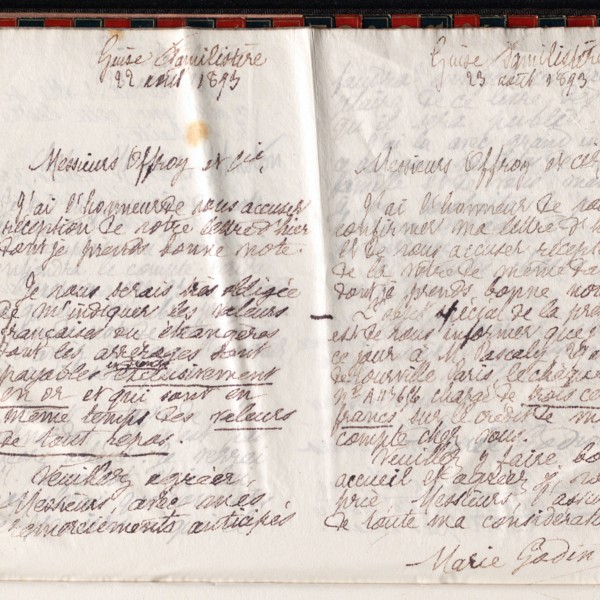 Guise Familistère
22 août 1893
Messieurs Offroy et Cie,
J'ai l'honneur de vous accuser
réception de votre lettre d'hier
dont je prends bonne note.
Je vous serais très obligée
de m'indiquer les valeurs
françaises ou étrangères
dont les arrérages sont
payables exclusivement
en or et qui sont en
même temps des valeurs
de tout repos.
Veuillez agréer,
Messieurs, avec mes
remerciements anticipés
Guise Familistère
23 août 1893
Messieurs Offroy et Cie
J'ai l'honneur de vo
confirmer ma lettre d'h
et de vous accuser récept
de la vôtre de même da
dont je prends bonne no
L'objet spécial de la pré
est de vous informer que
ce jour à M. Pascaly
de Tourville Paris, le chèq
francs, sur le crédit de m
compte chez vous.
Veuillez y faire bo
accueil et agréer, je vo
prie, Messieurs, l'assu
de toute ma considérat
Marie Godin